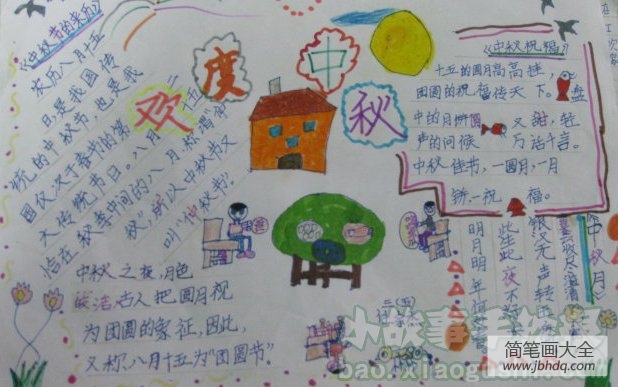 《中秋节的来历》
农历八月十五
日是我国传
统的中秋节，也是我
国仅次于春节的第
二大传统节日。八月十五
恰在秋季中间的八月称谓“仲
秋”，所以中秋节又
叫“仲秋节”。
欢度中秋
《中秋祝福》
十五的圆月高高挂，
团圆的祝福传天下。盘
中的月饼圆又甜，轻
声的问候万语千言。
中秋佳节，一圆月，一月
饼，一祝福。
中秋之夜，月色
皎洁，古人把圆月视
为团圆的象征，因此，
又称八月十五为“团圆节”。
《中秋月》
暮云收尽溢清
银汉无声转
此生此夜不
明月明年何
小故事手绘
bao.xiaogu
简笔画大全
www.jbhdq.com